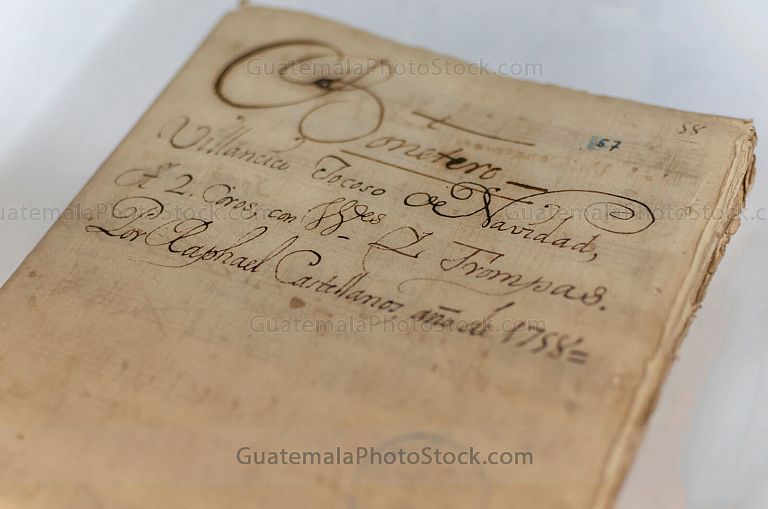 GuatemalaPhotoStock.com
58
57
Bonetero
Villancico Jocoso de Navidad,
A 2. Coros, con VV.es Y Trompas.
Por Raphael Castellanos, año de 1758=
GuatemalaPhotoStock.com GuatemalaPhotoStock.com GuatemalaPhotoStock.com
GuatemalaPhotoStock.com
GuatemalaPhotoStock.com